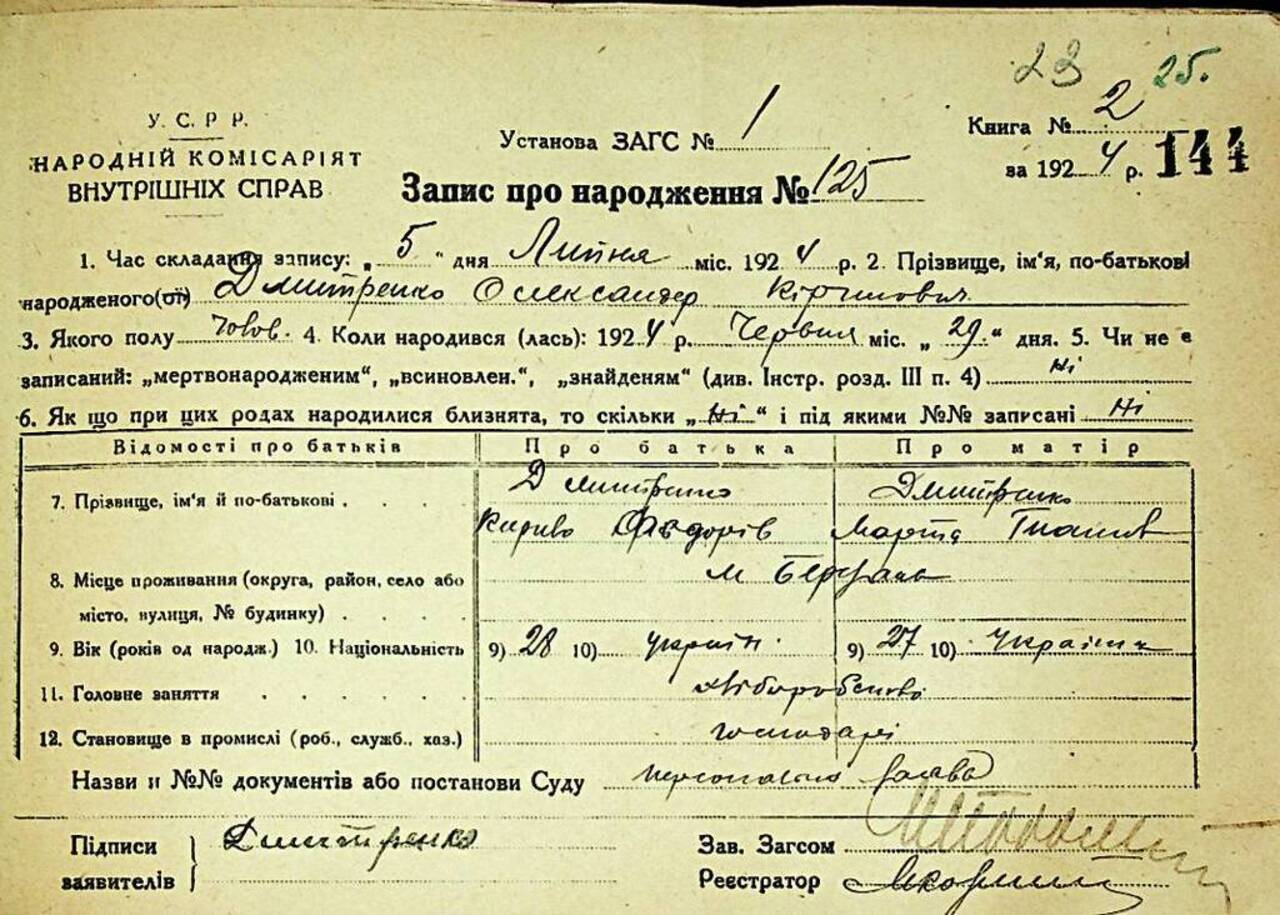 23 25.
У. С. Р Р.
НАРОДНІЙ КОМІСАРІЯТ
ВНУТРІШНІХ СПРАВ
Установа ЗАГС № 1
Книга № 2
за 1924 р. 144
Запис про народження № 125
1. Час складання запису: „ 5 " дня Липня міс. 1924 р. 2. Прізвище, ім'я, по-батькові
народженого(ої) Дмитренко Олександер
3. Якого полу чолов. 4. Коли народився (лась): 1924 р. Червня міс. „ 29. " дня. 5. Чи не є
записаний: „мертвонародженим", „всиновлен.", „знайденям" (див. Інстр. розд. III п. 4) Ні
6. Як що при цих родах народилися близнята, то скільки „ Ні " і під якими №№ записані Ні
Відомості про батьків Про батька Про матір
Дмитренко Дмитренко
7. Прізвище, ім'я й по-батькові . . . .
Кирило Федорів Марта
8. Місце проживання (округа, район, село або м Березань
місто, вулиця, № будинку) . . . .
9. Вік (років од народж.) 10. Національність 9) 28 10) україн. 9) 27 10) Українка
11. Головне заняття . . . . . . Хліборобство
12. Становище в промислі (роб., служб., хаз.) господарі
Назви й №№ документів або постанови Суду персональна заява
Підписи Дмитренко
заявителів
Зав. Загсом
Реєстратор